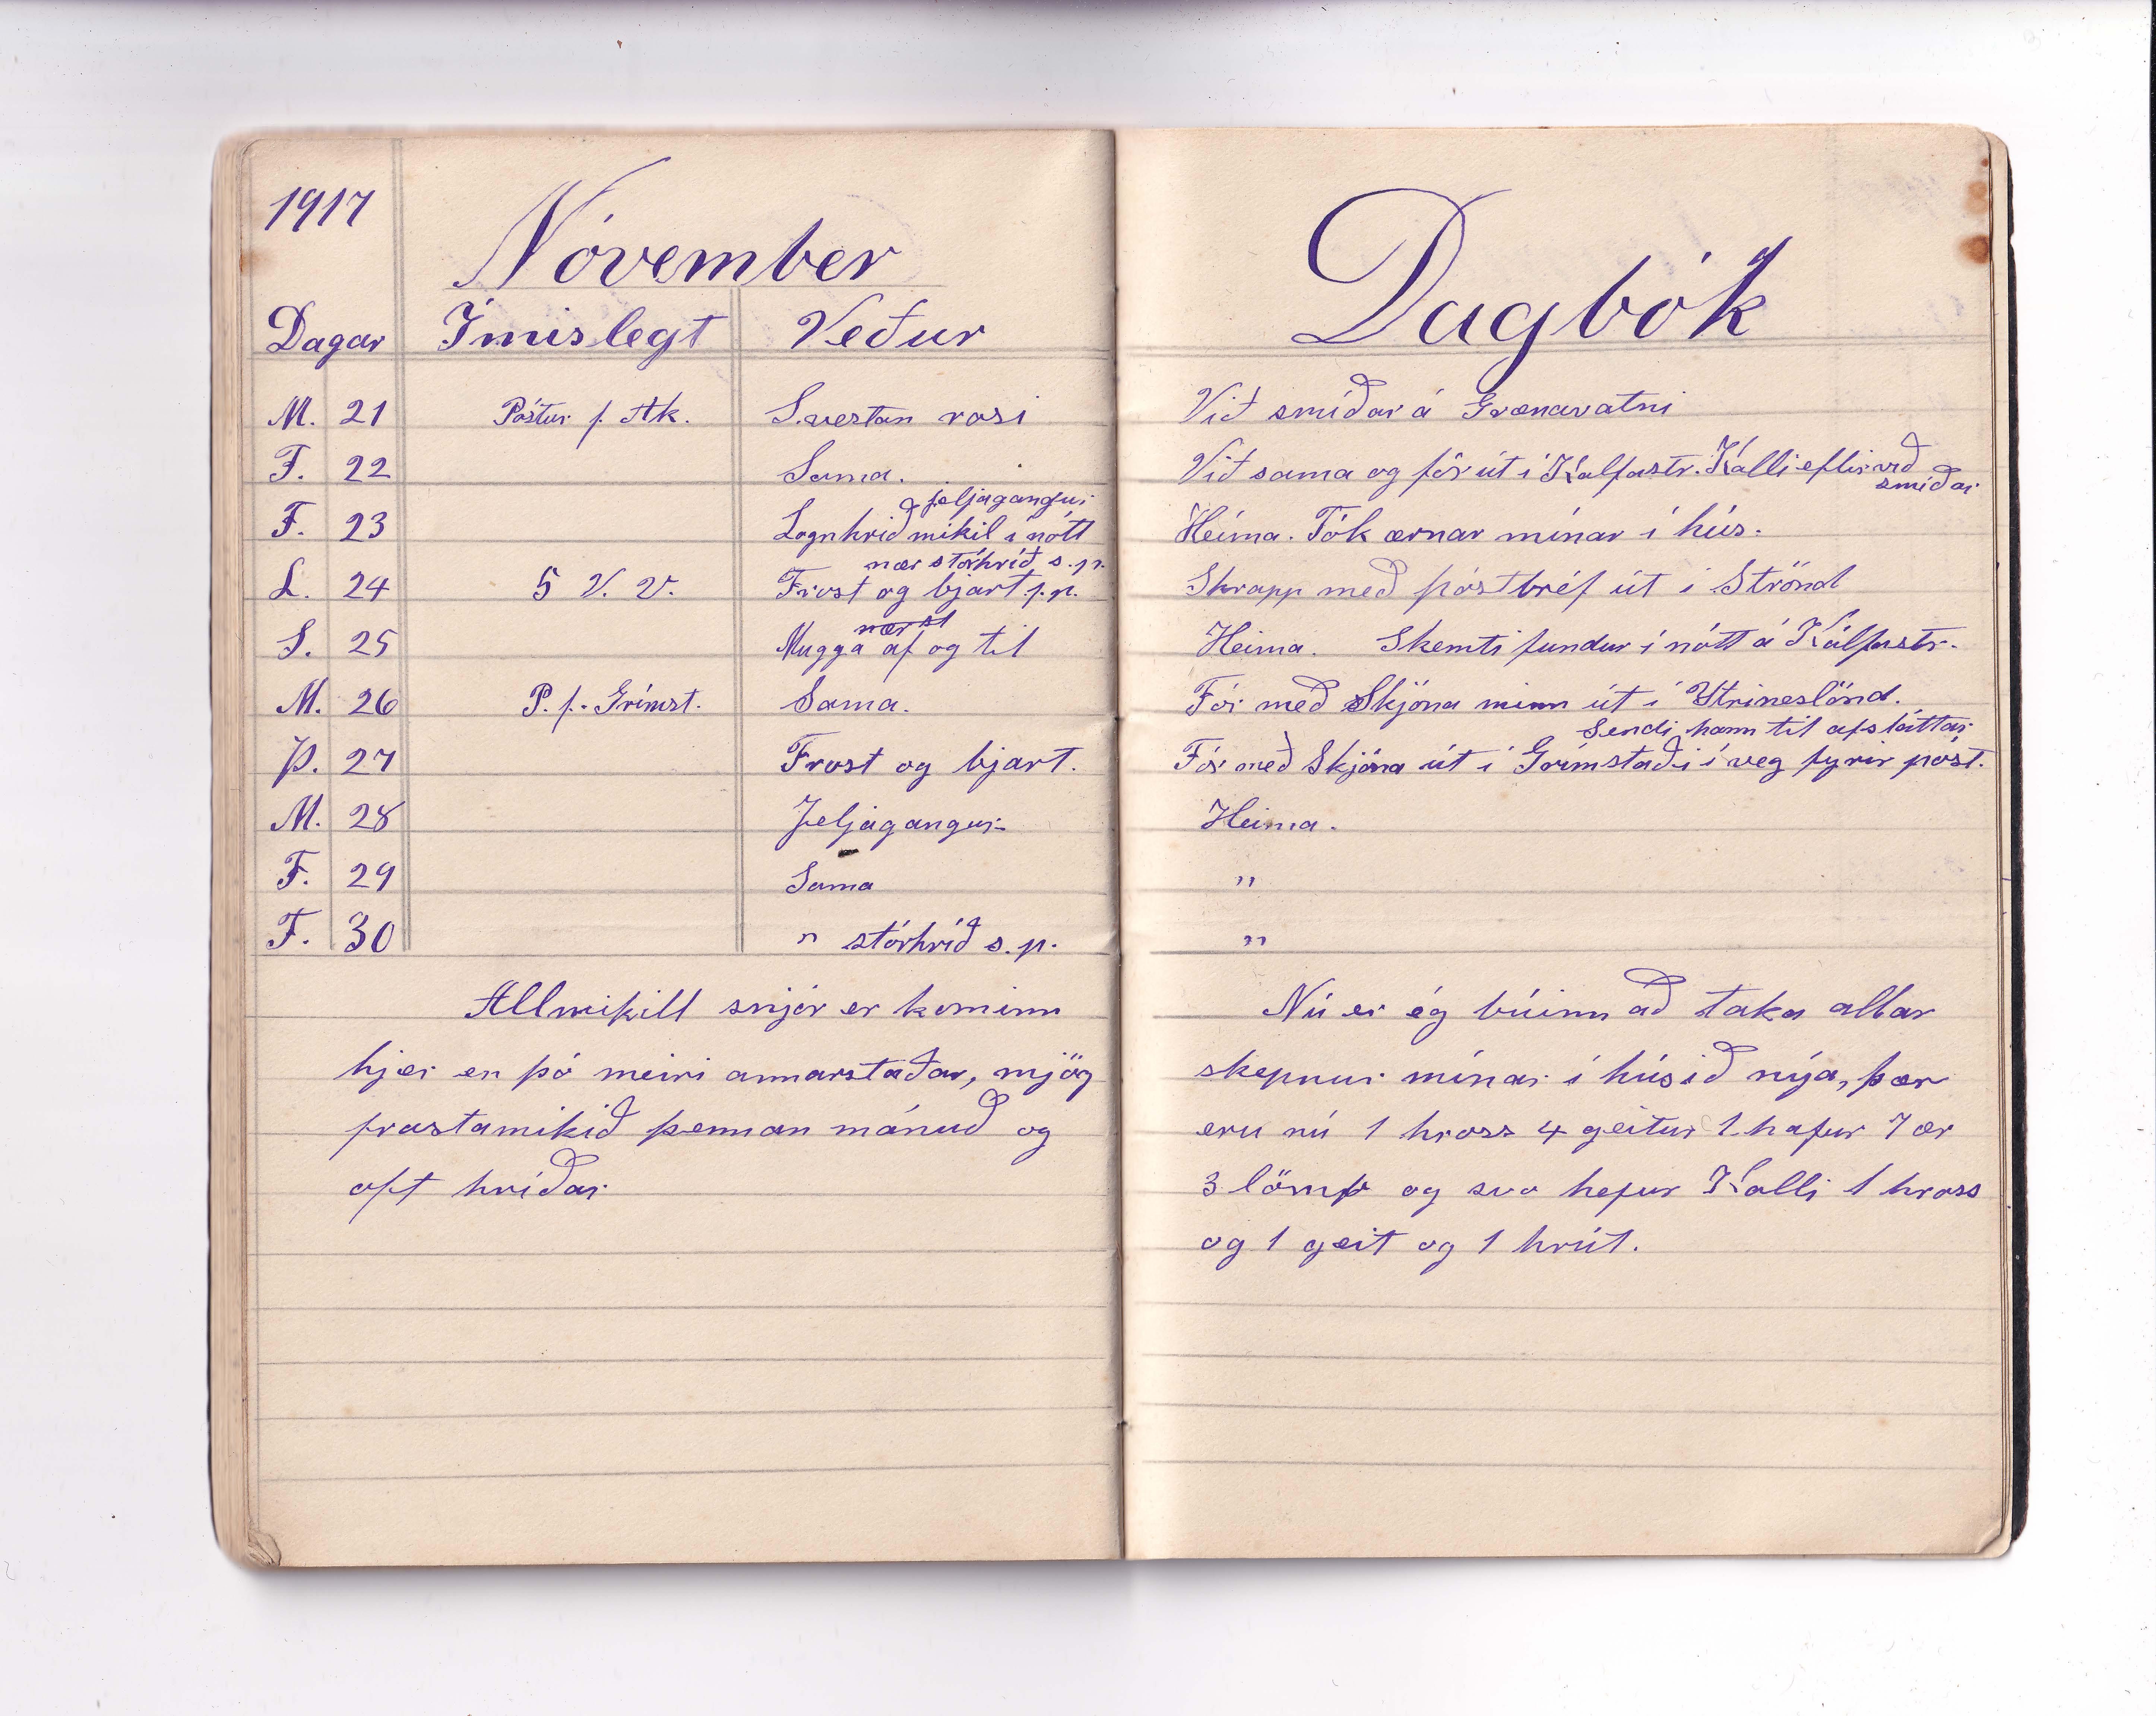 1917
Nóvember
Dagar Ímislegt Veður
M. 21 Póstur f. Ak. S.vestan rosi
F. 22 Sama.
jeljagangur
F. 23 Lognhríð mikil í nótt
nær stórhríð s.p.
L. 24 5 V. V. Frost og bjart f.p.
S. 25 Mugga af og til
M. 26 P. f. Grímst. Sama.
Þ. 27 Frost og bjart.
M. 28 Jeljagangur
F. 29 Sama
F. 30 " stórhríð s.p.
Allmikill snjór er kominn
hjer en þó meiri annarstaðar, mjög
frostamikið þennan mánuð og
oft hríðar
Dagbók
Við smíðar á Grænavatni
Við sama og fór út í Kálfastr. Kalli eftir við
smíðar
Heima. Tók ærnar mínar í hús.
Skrapp með póstbréf út í Strönd
Heima. Skemtifundur í nótt á Kálfastr.
Fór með Skjóna minn út í Ytrineslönd.
Sendi hann til afsláttar
Fór með Skjóna út í Grímstaði í veg fyrir póst.
Heima.
"
"
Nú er ég búinn að taka allar
skepnur mínar í húsið nýja, þær
eru nú 1 hross 4 geitur 1 hafur 7 ær
3 lömb og svo hefur Kalli 1 hross
og 1 geit og 1 hrút.